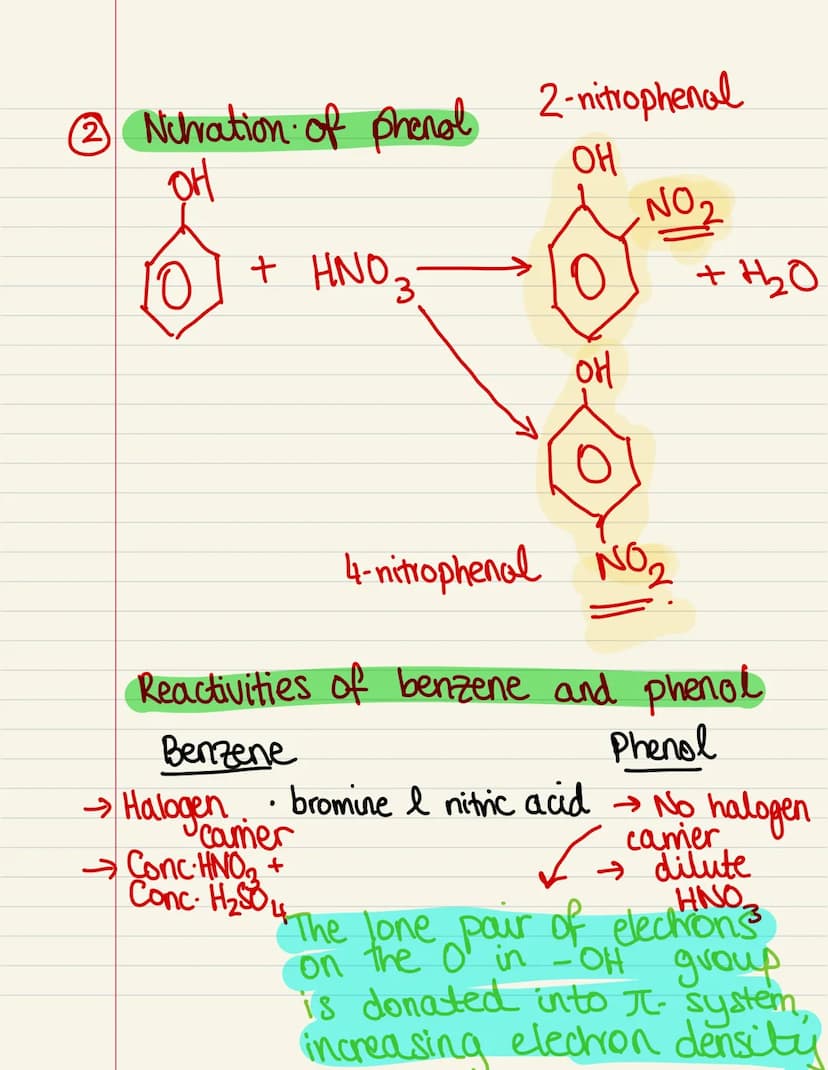 2-nitrophenol
② Nitration of phenol
OH
OH
NO2
+ HNO3
+ H2O
OH
4-nitrophenol
NO2
Reactivities of benzene and phenol
Benzene
Phenol
→ Halogen carrier
· bromine & nitric acid
→ No halogen carrier
→ Conc. HNO3 +
Conc. H2SO4
→ dilute
HNO3
The lone pair of electrons
on the O in -OH group
is donated into π- system,
increasing electron density